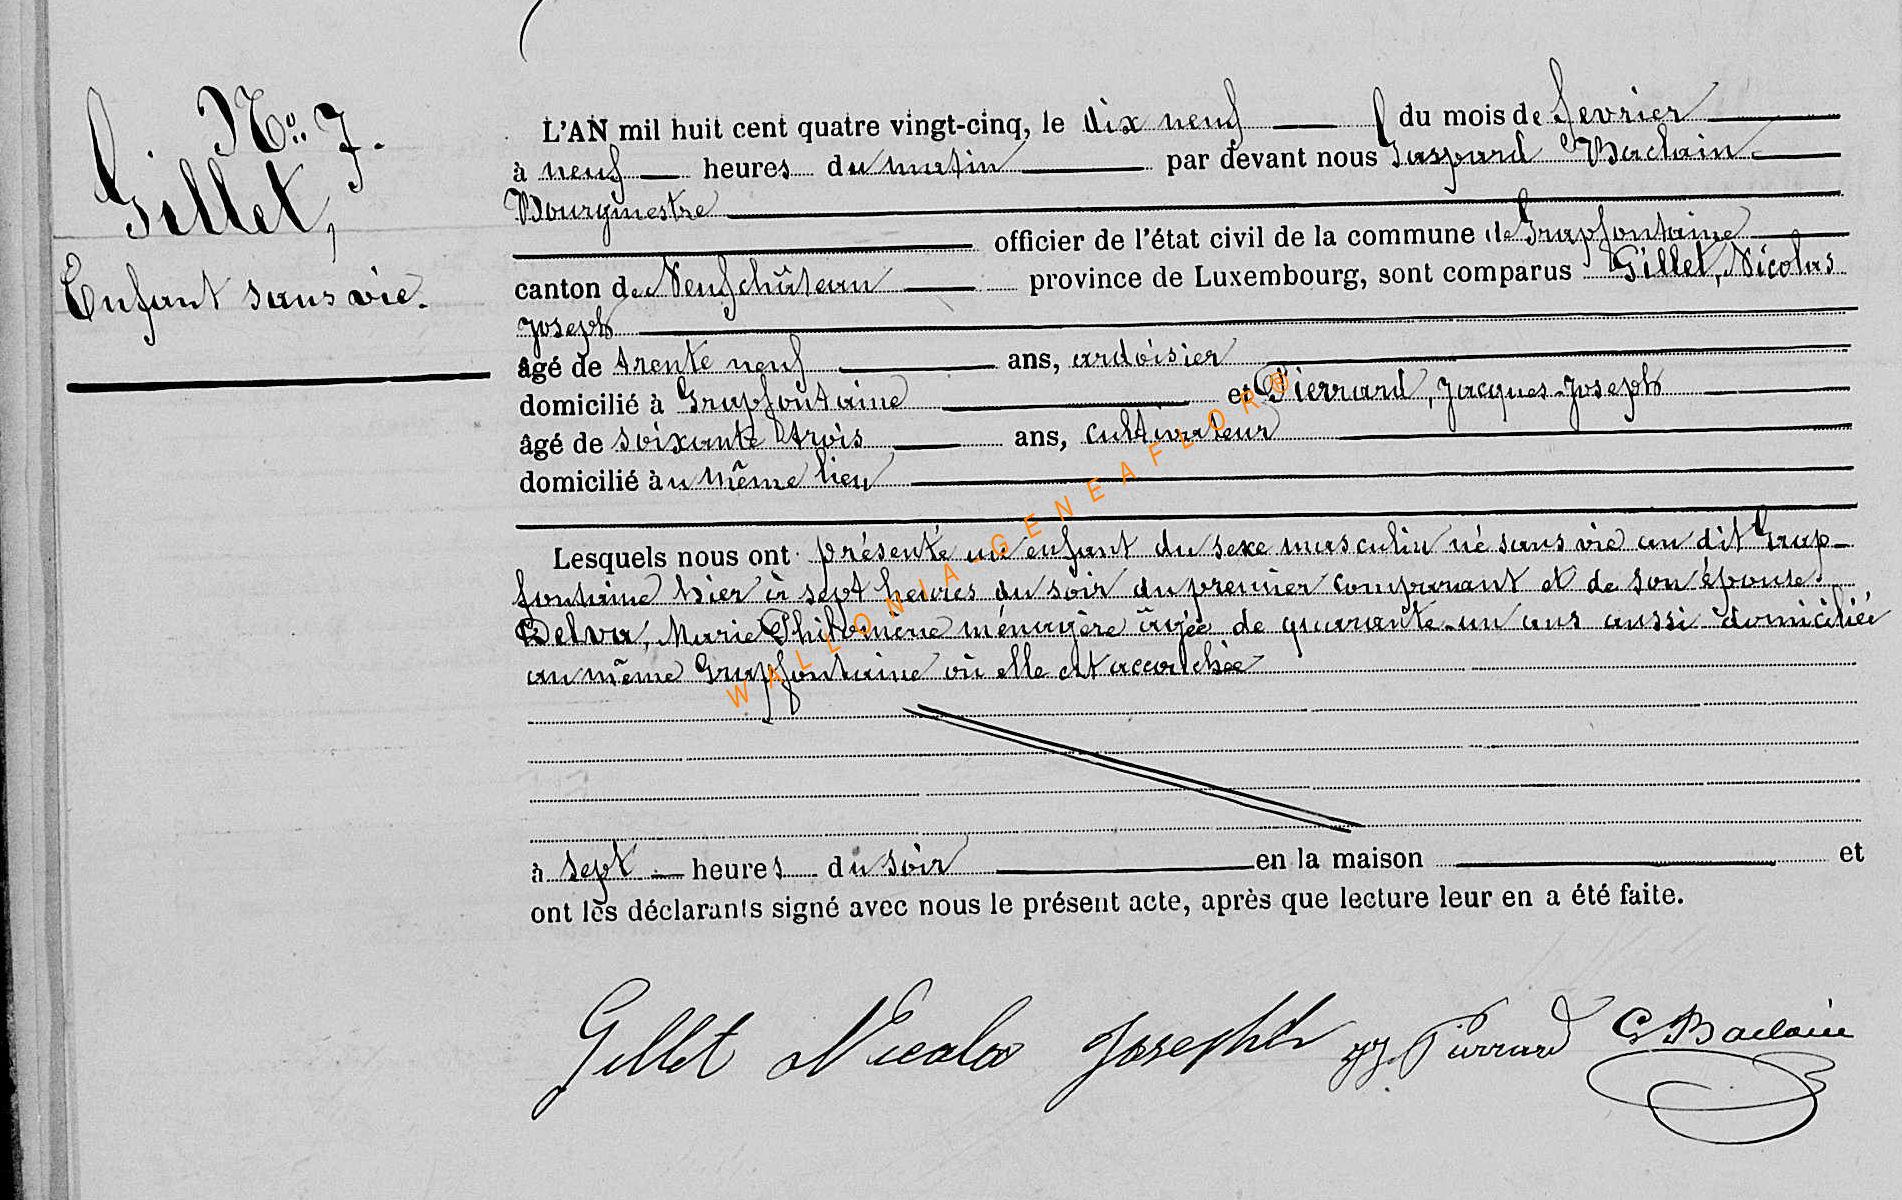 Nº 7.
Gillet,
Enfant sans vie.
L'AN mil huit cent quatre vingt-cinq, le dix neuf du mois de fevrier
à neuf heures du matin par devant nous Gaspard Baclain
Bourgmestre
officier de l'état civil de la commune de Grapfontaine
canton de Neufchâteau province de Luxembourg, sont comparus Gillet, Nicolas
Joseph
âgé de trente neuf ans, ardoisier
domicilié à Grapfontaine et Pierrard, Jacques-Joseph
âgé de soixante trois ans, cultivateur
domicilié au même lieu
Lesquels nous ont présenté un enfant du sexe masculin né sans vie au dit Grap-
fontaine hier à sept heures du soir du premier comparant et de son épouse
Delva, Marie Philomène ménagère âgée de quarante-un ans aussi domiciliée
au même Grapfontaine où elle est accouchée
à sept heures du soir en la maison et
ont les déclarants signé avec nous le présent acte, après que lecture leur en a été faite.
Gillet Nicolas Joseph JJ. Pierrard G Baclain
WALLONIA-GENEAFLOR®